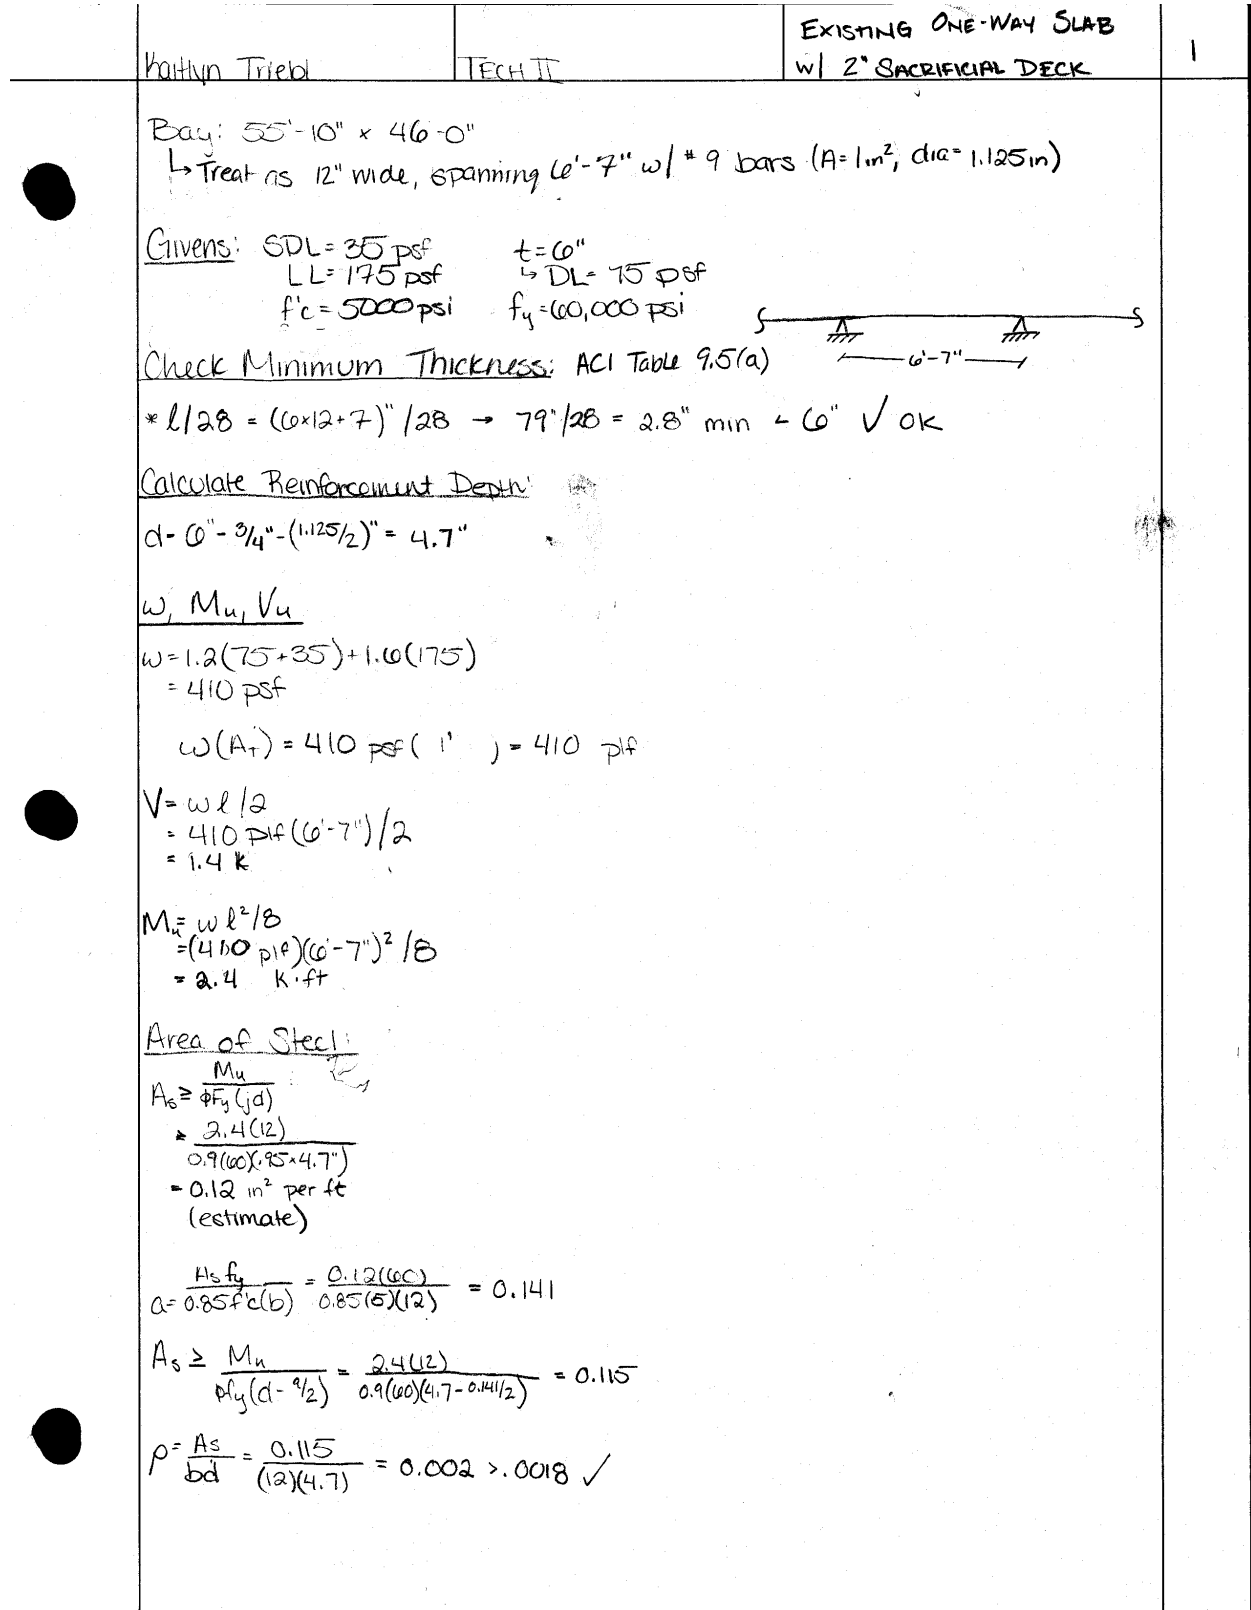 Kaitlyn Triebl
TECH II
EXISTING ONE-WAY SLAB
w/ 2" SACRIFICIAL DECK
1
Bay: 55'-10" x 46'-0"
↳ Treat as 12" wide, spanning 6'-7" w/ #9 bars (A=1in², dia=1.125in)
Givens: SDL=35 psf t=6"
LL=175 psf ↳ DL= 75 psf
f'c=5000psi fy=60,000 psi
6'-7"
Check Minimum Thickness: ACI Table 9.5(a)
* l/28 = (6x12+7)"/28 → 79"/28 = 2.8" min < 6" ✓ OK
Calculate Reinforcement Depth:
d= 6"- 3/4"-(1.125/2)"= 4.7"
w, Mu, Vu
w=1.2(75+35)+1.6(175)
= 410 psf
w(A_T) = 410 psf( 1' ) = 410 plf
V= wl/2
= 410 plf(6'-7")/2
= 1.4 k
Mu= wl²/8
=(410 plf)(6'-7")²/8
= 2.4 k·ft
Area of Steel:
As ≥ Mu / ΦFy(jd)
≥ 2.4(12) / 0.9(60)(.95x4.7")
= 0.12 in² per ft
(estimate)
a= As fy / 0.85f'c(b) = 0.12(60) / 0.85(5)(12) = 0.141
As ≥ Mu / Φfy(d-a/2) = 2.4(12) / 0.9(60)(4.7-0.141/2) = 0.115
ρ= As / bd = 0.115 / (12)(4.7) = 0.002 >.0018 ✓